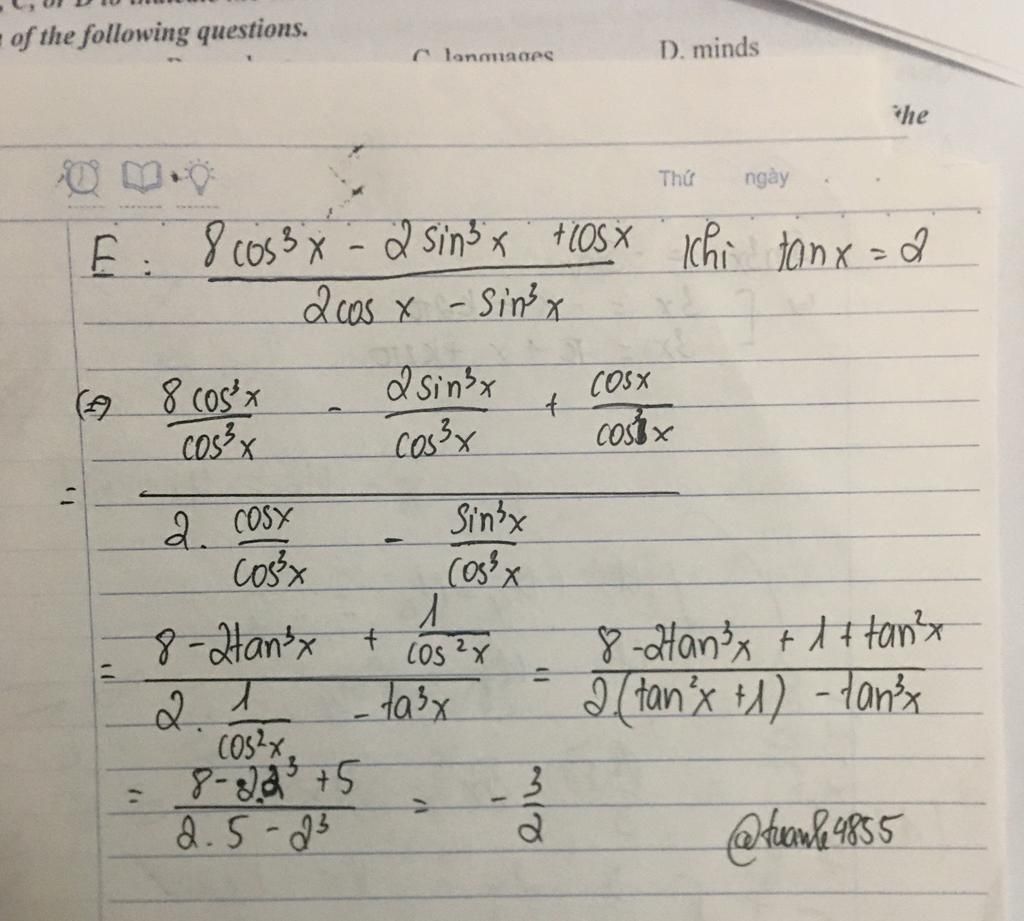 of the following questions.
C. languages D. minds
the
Thứ ngày
E : (8 cos³x - 2 sin³x + cosx) / (2cos x - sin³x) Khi tanx = 2
= (8 cos³x / cos³x - 2 sin³x / cos³x + cosx / cos³x) / (2. cosx / cos³x - sin³x / cos³x)
= (8 - 2tan³x + 1 / cos²x) / (2. 1 / cos²x - ta³x) = (8 - 2tan³x + 1 + tan²x) / (2(tan²x + 1) - tan³x)
= (8 - 2.2³ + 5) / (2. 5 - 2³) = - 3 / 2
@tuanle4855